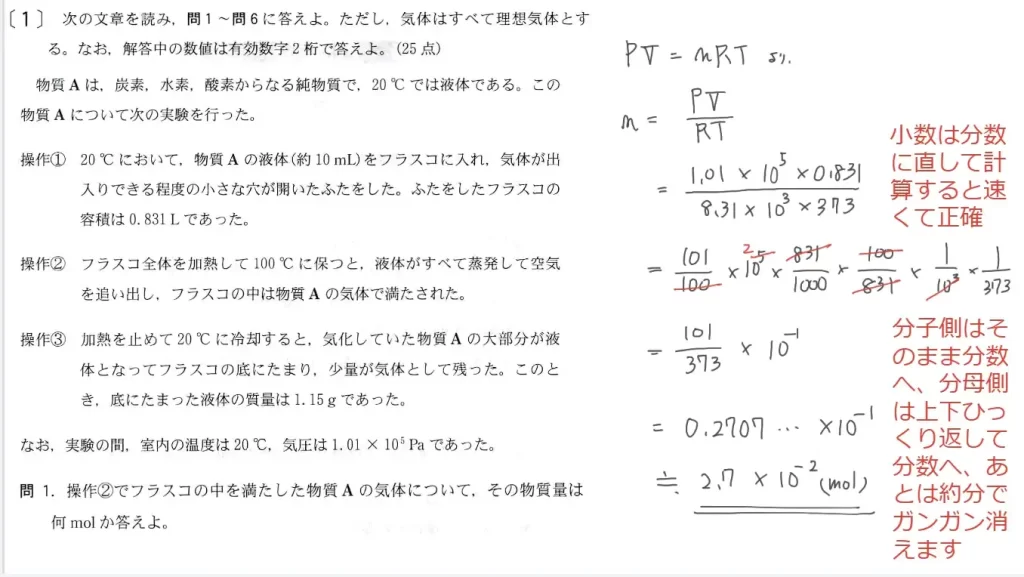 〔1〕 次の文章を読み，問1～問6に答えよ。ただし，気体はすべて理想気体とす
る。なお，解答中の数値は有効数字2桁で答えよ。(25点)
物質Aは，炭素，水素，酸素からなる純物質で，20℃では液体である。この
物質Aについて次の実験を行った。
操作① 20℃において，物質Aの液体(約10mL)をフラスコに入れ，気体が出
入りできる程度の小さな穴が開いたふたをした。ふたをしたフラスコの
容積は0.831Lであった。
操作② フラスコ全体を加熱して100℃に保つと，液体がすべて蒸発して空気
を追い出し，フラスコの中は物質Aの気体で満たされた。
操作③ 加熱を止めて20℃に冷却すると，気化していた物質Aの大部分が液
体となってフラスコの底にたまり，少量が気体として残った。このと
き，底にたまった液体の質量は1.15gであった。
なお，実験の間，室内の温度は20℃，気圧は1.01×10⁵Paであった。
問1．操作②でフラスコの中を満たした物質Aの気体について，その物質量は
何molか答えよ。
PV = nRT より.
n = PV/RT
= 1.01 × 10⁵ × 0.831 / 8.31 × 10³ × 373
= 101/100 × 10⁵ 2 × 831/1000 × 100/831 × 1/10³ × 1/373
= 101/373 × 10⁻¹
= 0.2707 … ×10⁻¹
≒ 2.7 × 10⁻² (mol)
小数は分数
に直して計
算すると速
くて正確
分子側はそ
のまま分数
へ、分母側
は上下ひっ
くり返して
分数へ、あ
とは約分で
ガンガン消
えます